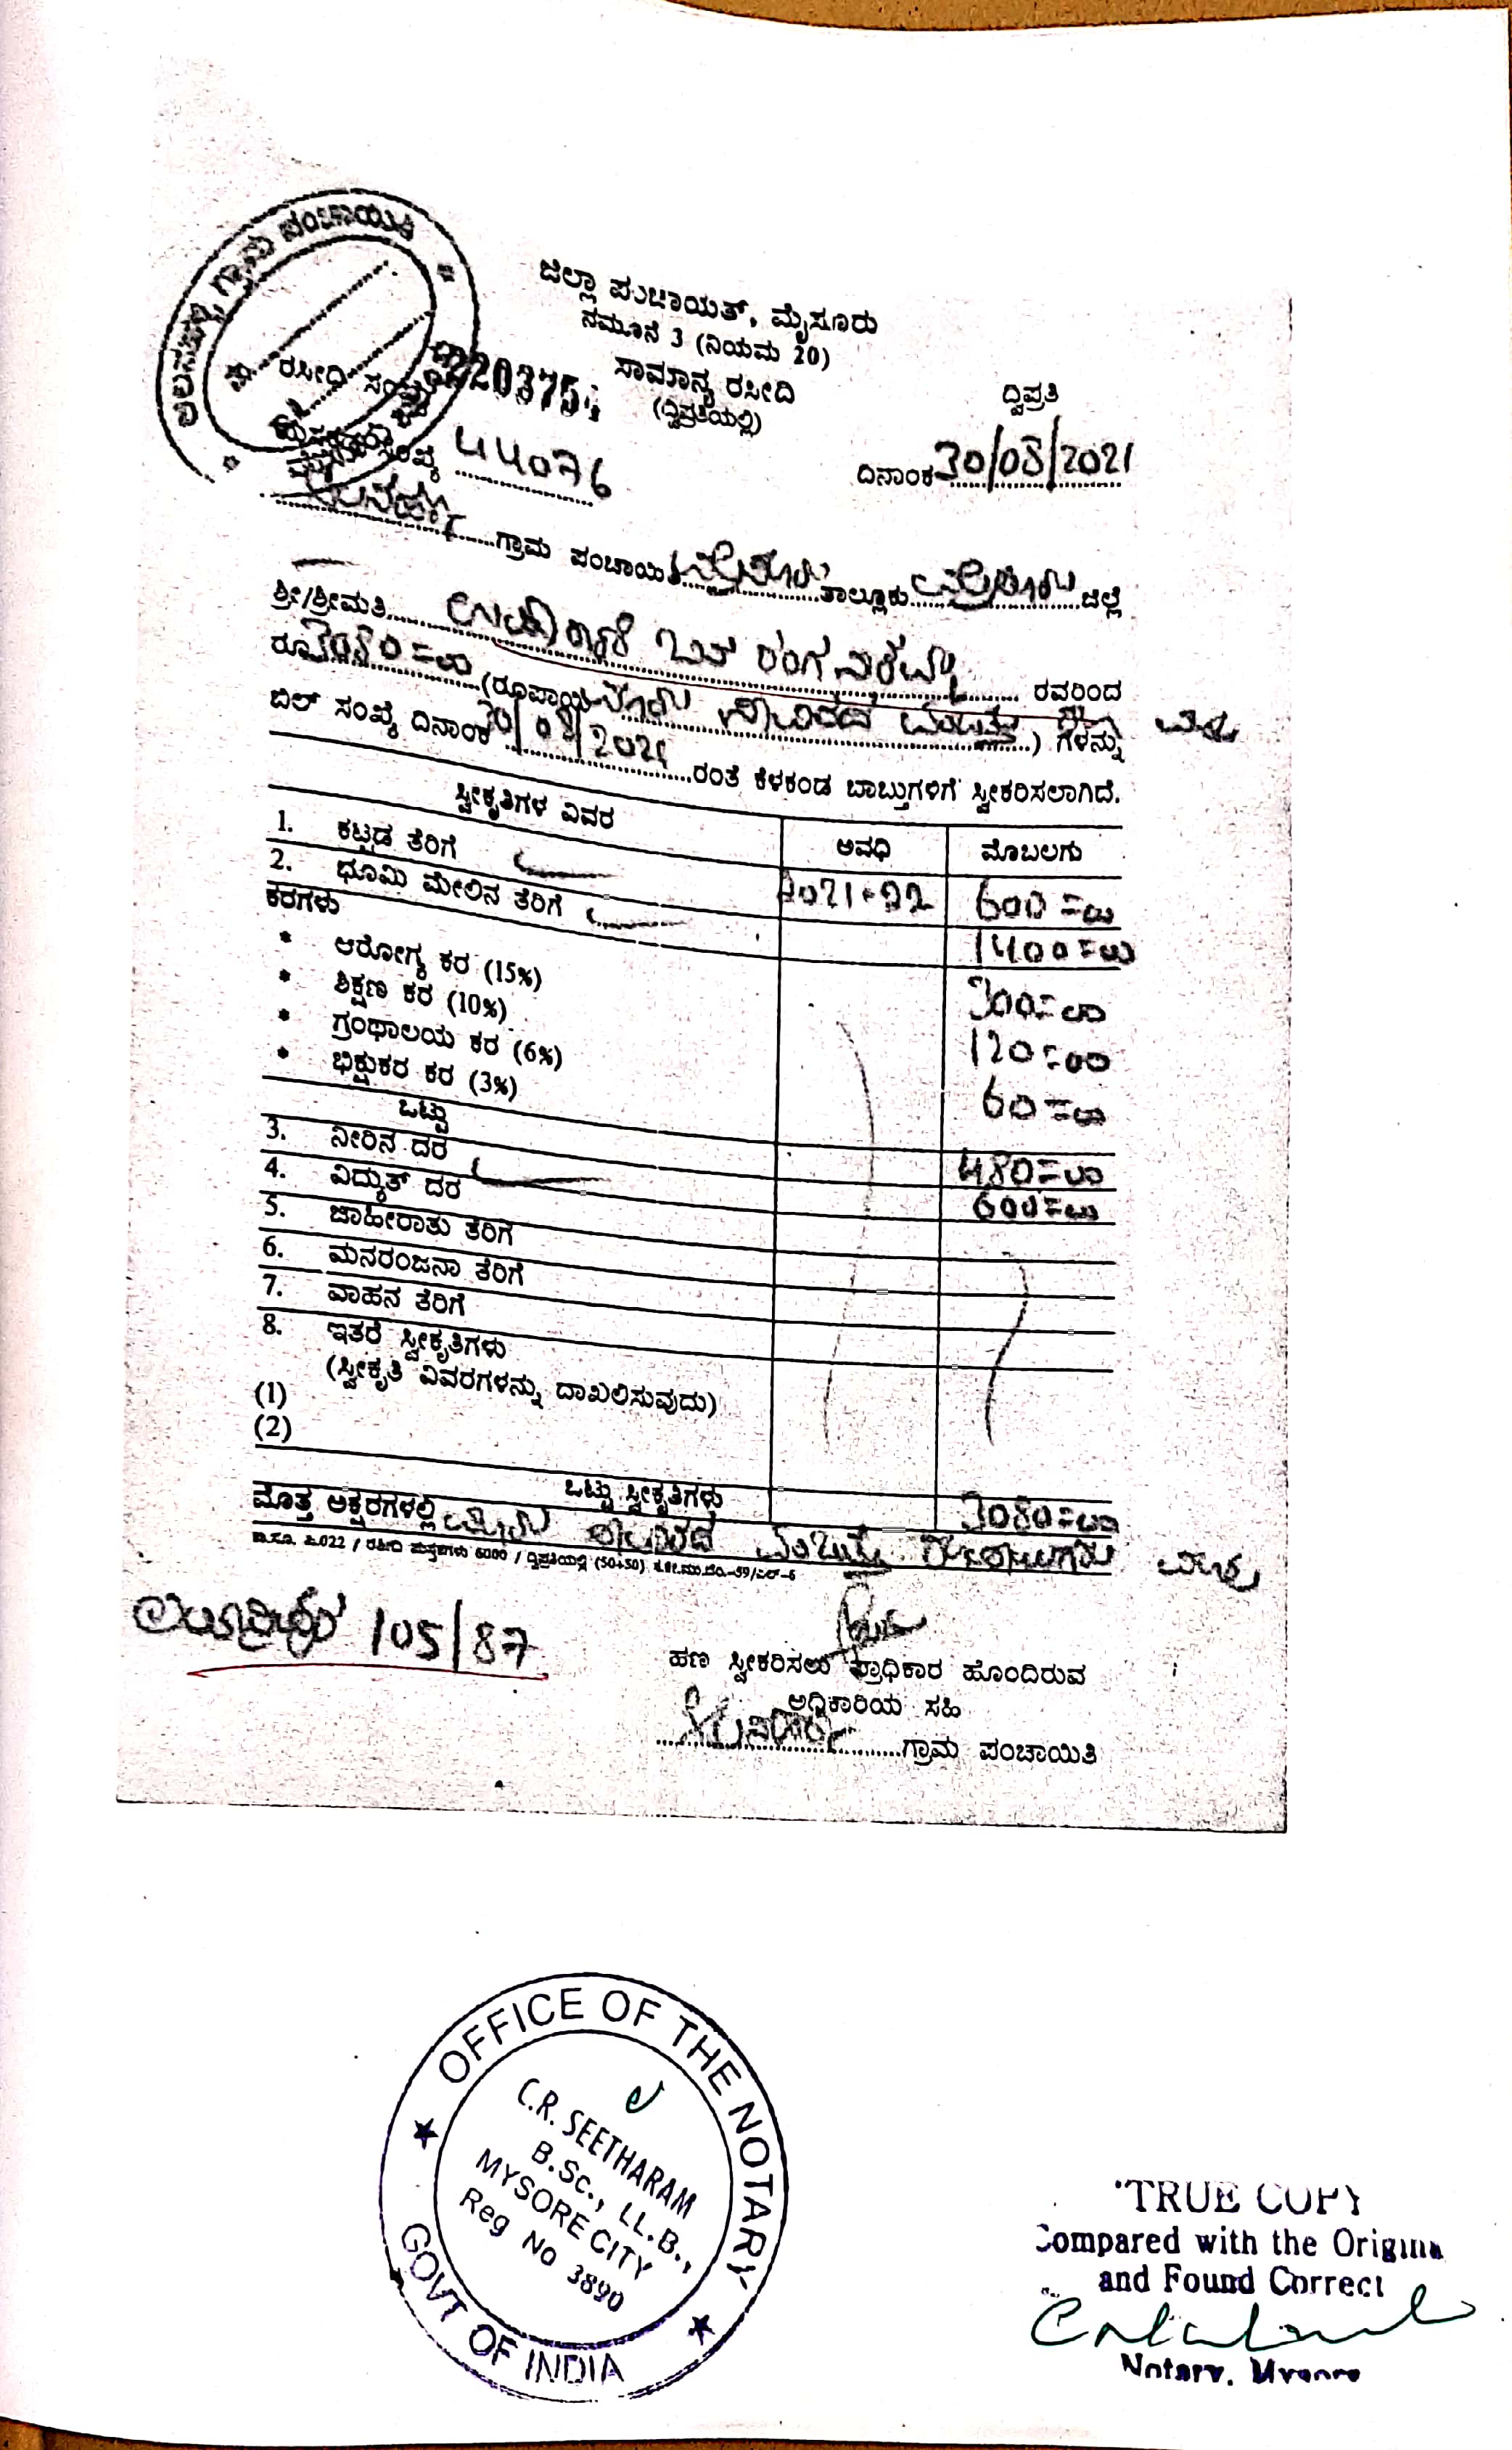 ಗ್ರಾಮ ಪಂಚಾಯಿತಿ
ಜಿಲ್ಲಾ ಪಂಚಾಯತ್, ಮೈಸೂರು
ನಮೂನೆ 3 (ನಿಯಮ 20)
ಸಾಮಾನ್ಯ ರಸೀದಿ
(ದ್ವಿಪ್ರತಿಯಲ್ಲಿ)
ದ್ವಿಪ್ರತಿ
ರಸೀದಿ ಸಂಖ್ಯೆ 220375
ಪುಸ್ತಕದ ಸಂಖ್ಯೆ 44076
ದಿನಾಂಕ 30/08/2021
ಗ್ರಾಮ ಪಂಚಾಯಿತಿ ಮೈಸೂರು ತಾಲ್ಲೂಕು ಮೈಸೂರು ಜಿಲ್ಲೆ
ಶ್ರೀ/ಶ್ರೀಮತಿ ರವರಿಂದ
ರೂ 3080=00 (ರೂಪಾಯಿ ಮೂರು ಸಾವಿರದ ಎಂಬತ್ತು ) ಗಳನ್ನು
ಬಿಲ್ ಸಂಖ್ಯೆ ದಿನಾಂಕ 30/08/2021 ರಂತೆ ಕೆಳಕಂಡ ಬಾಬ್ತುಗಳಿಗೆ ಸ್ವೀಕರಿಸಲಾಗಿದೆ.
ಸ್ವೀಕೃತಿಗಳ ವಿವರ ಅವಧಿ ಮೊಬಲಗು
1. ಕಟ್ಟಡ ತೆರಿಗೆ 2021-22 600=00
2. ಭೂಮಿ ಮೇಲಿನ ತೆರಿಗೆ 1400=00
ಕರಗಳು
* ಆರೋಗ್ಯ ಕರ (15%) 300=00
* ಶಿಕ್ಷಣ ಕರ (10%)
* ಗ್ರಂಥಾಲಯ ಕರ (6%) 120=00
* ಭಿಕ್ಷುಕರ ಕರ (3%) 60=00
ಒಟ್ಟು 480=00
3. ನೀರಿನ ದರ 600=00
4. ವಿದ್ಯುತ್ ದರ
5. ಜಾಹೀರಾತು ತೆರಿಗೆ
6. ಮನರಂಜನಾ ತೆರಿಗೆ
7. ವಾಹನ ತೆರಿಗೆ
8. ಇತರೆ ಸ್ವೀಕೃತಿಗಳು
(ಸ್ವೀಕೃತಿ ವಿವರಗಳನ್ನು ದಾಖಲಿಸುವುದು)
(1)
(2)
ಒಟ್ಟು ಸ್ವೀಕೃತಿಗಳು 3080=00
ಮೊತ್ತ ಅಕ್ಷರಗಳಲ್ಲಿ ಮೂರು ಸಾವಿರದ ಎಂಬತ್ತು ರೂಪಾಯಿಗಳು ಮಾತ್ರ
105/87
ಹಣ ಸ್ವೀಕರಿಸಲು ಪ್ರಾಧಿಕಾರ ಹೊಂದಿರುವ
ಅಧಿಕಾರಿಯ ಸಹಿ
ಗ್ರಾಮ ಪಂಚಾಯಿತಿ
OFFICE OF THE NOTARY
C.R. SEETHARAM
B.Sc., LL.B.,
MYSORE CITY
Reg No 3890
GOVT OF INDIA
TRUE COPY
Compared with the Origina
and Found Correct
Notary, Mysore